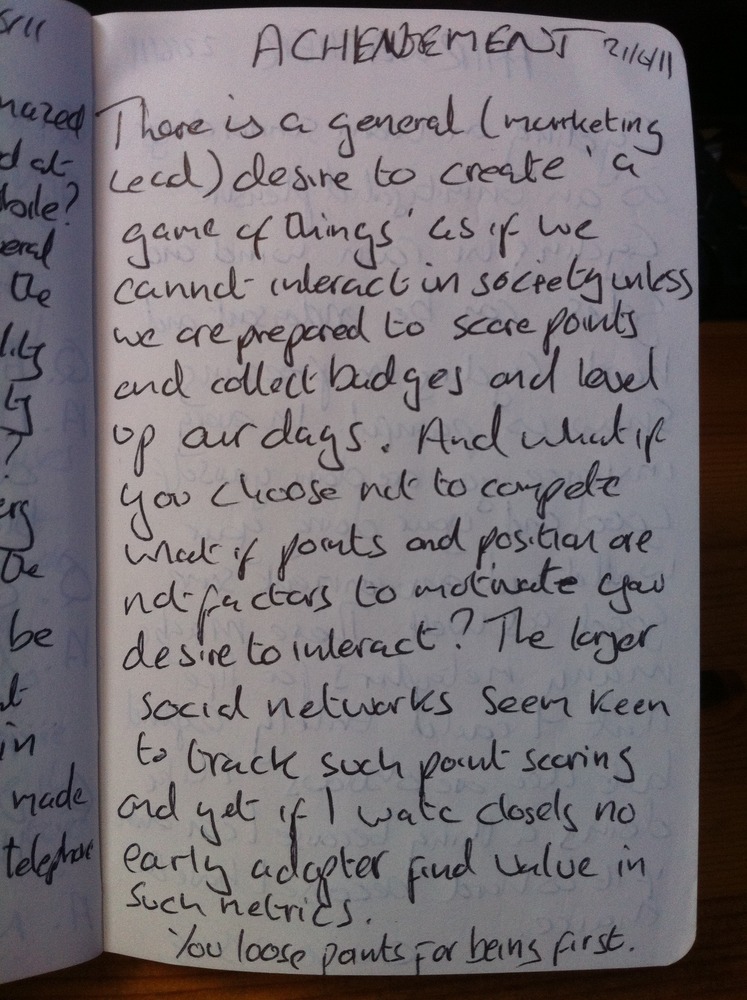 ACHENDEMENT 21/6/11
There is a general (marketing
Lead) desire to create 'a
game of things' as if we
cannot interact in society unless
we are prepared to score points
and collect badges and level
up our days. And what if
you choose not to compete
what if points and position are
not factors to motivate you
desire to interact? The larger
social networks seem keen
to track such point scoring
and yet if I watc closely no
early adopter find value in
such metrics.
You loose points for being first.
mazed
d at
eral
the
?
the
be
in
made
telephone